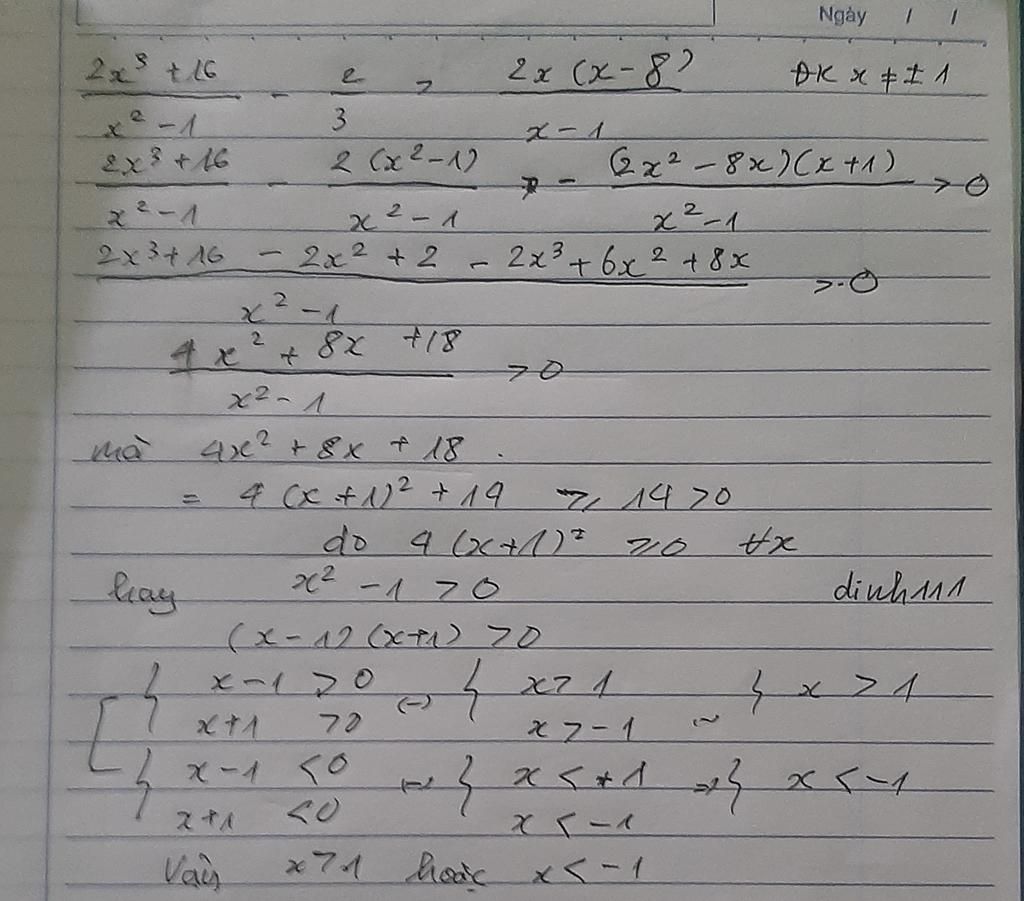 Ngày / /
(2x³ + 16)/(x² - 1) - 2/3 > 2x(x - 8)/(x - 1) ĐK x ≠ ± 1
(2x³ + 16)/(x² - 1) - 2(x² - 1)/(x² - 1) - (2x² - 8x)(x + 1)/(x² - 1) > 0
(2x³ + 16 - 2x² + 2 - 2x³ + 6x² + 8x)/(x² - 1) > 0
(4x² + 8x + 18)/(x² - 1) > 0
mà 4x² + 8x + 18.
= 4(x + 1)² + 14 ≥ 14 > 0
do 4(x + 1)² ≥ 0 ∀x
hay x² - 1 > 0 dinh111
(x - 1)(x + 1) > 0
[ { x - 1 > 0 ↔ { x > 1 ↔ { x > 1
x + 1 > 0 x > -1
{ x - 1 < 0 ↔ { x < +1 ⇒ { x < -1
x + 1 < 0 x < -1
Vậy x > 1 hoặc x < -1